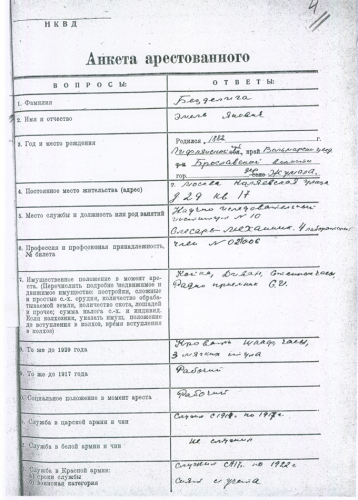 4
НКВД
Анкета арестованного
ВОПРОСЫ: ОТВЕТЫ:
1. Фамилия
Безделига
2. Имя и отчество
Эмиль Янович
3. Год и место рождения
Родился 1882 г.
Лифляндской край
гор.
4. Постоянное место жительства (адрес)
г. Москва улица
д 29 кв 17
5. Место службы и должность или род занятий
Научно исследовательский
институт № 10
Слесарь механик
6. Профессия и профсоюзная принадлежность, № билета
член №
7. Имущественное положение в момент ареста. (Перечислить подробно недвижимое и движимое имущество: постройки, сложные и простые с.-х. орудия, количество обрабатываемой земли, количество скота, лошадей и прочее; сумма налога с.-х. и индивид. Если колхозник, указать имущ. положение до вступления в колхоз, время вступления в колхоз)
Койка, Диван, часы
Радио приемник
8. То же до 1929 года
Кровать шкаф часы,
3 мягких стула
9. То же до 1917 года
Рабочий
10. Социальное положение в момент ареста
Рабочий
Служба в царской армии и чин
Служил с по
Служба в белой армии и чин
не служил
Служба в Красной армии:
срок службы
военная категория
Служил по 1922 г
снят с учета